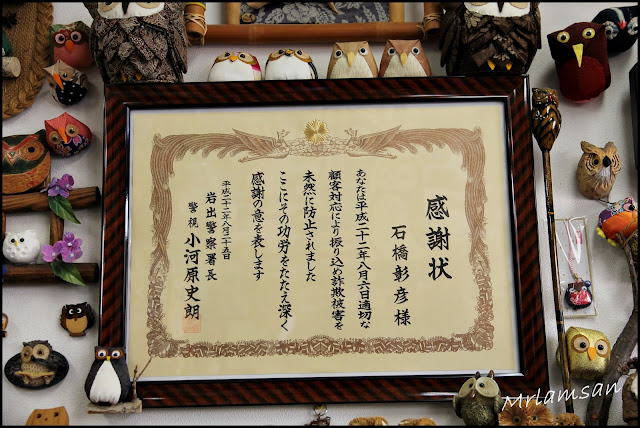 感謝状
石橋彰彦様
あなたは平成二十二年八月六日適切な
顧客対応により振り込め詐欺被害を
未然に防止されました
ここにその功労をたたえ深く
感謝の意を表します
平成二十二年八月二十五日
岩出警察署長
警視 小河原史朗
Mrlamsan